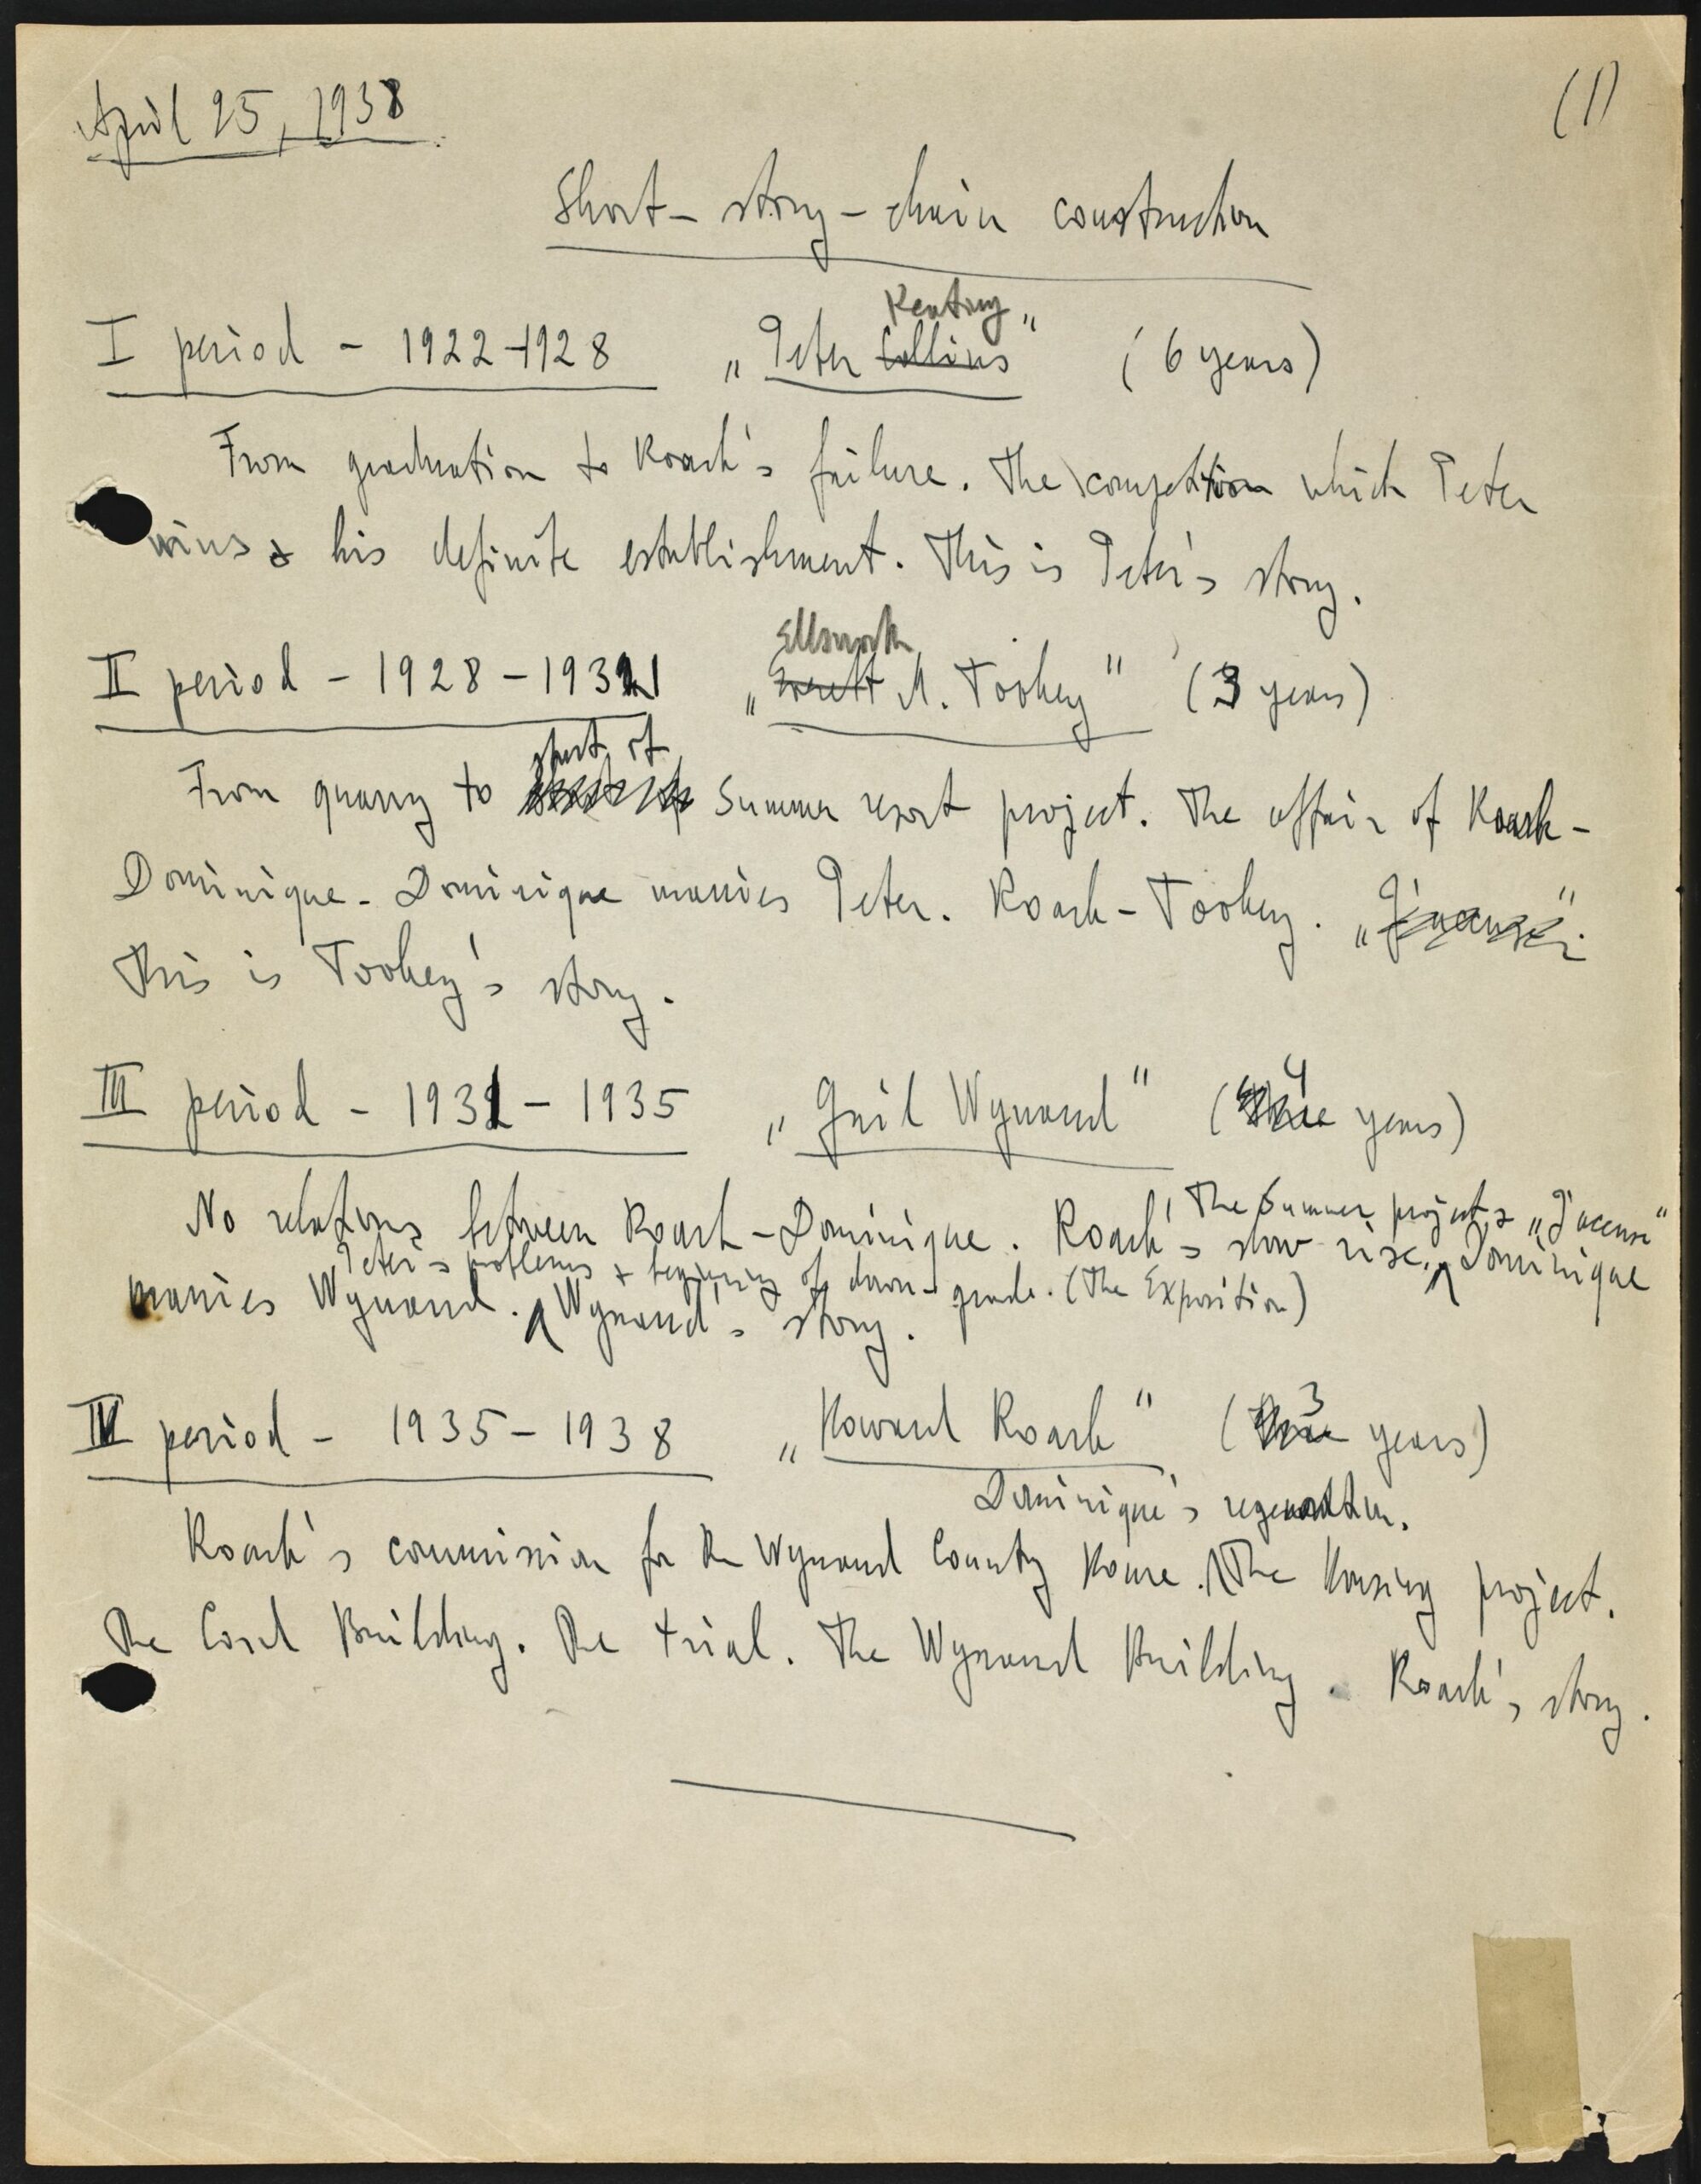 April 25, 1938
(1)
Short-story-chain construction
Keating
I period - 1922-1928 „Peter Collins" (6 years)
From graduation to Roark's failure. The competition which Peter
wins & his definite establishment. This is Peter's story.
Ellsworth
II period - 1928-1931 „Everett M. Toohey" (3 years)
start of
From quarry to Summer resort project. The affair of Roark-
Dominique. Dominique marries Peter. Roark-Toohey. „J'accuse".
This is Toohey's story.
4
III period - 1931-1935 „Gail Wynand" (years)
The Summer project & „J'accuse"
No relations between Roark-Dominique. Roark's slow rise. Dominique
Peter's problems & beginning of down-grade. (The Exposition)
marries Wynand. Wynand's story.
3
IV period - 1935-1938 „Howard Roark" (years)
Dominique's regeneration.
Roark's commission for the Wynand Country House. The Housing project.
The Cord Building. The trial. The Wynand Building. Roark's story.